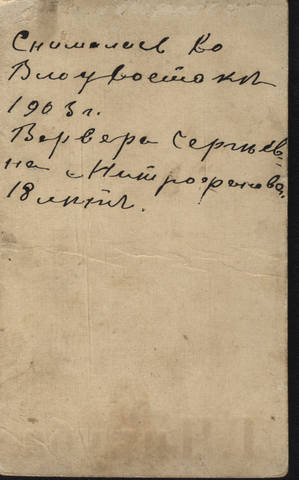 Снималась во
Владивостокѣ
1903 г.
Варвара Сергѣев-
на Митрофанова.
18 лѣтъ.